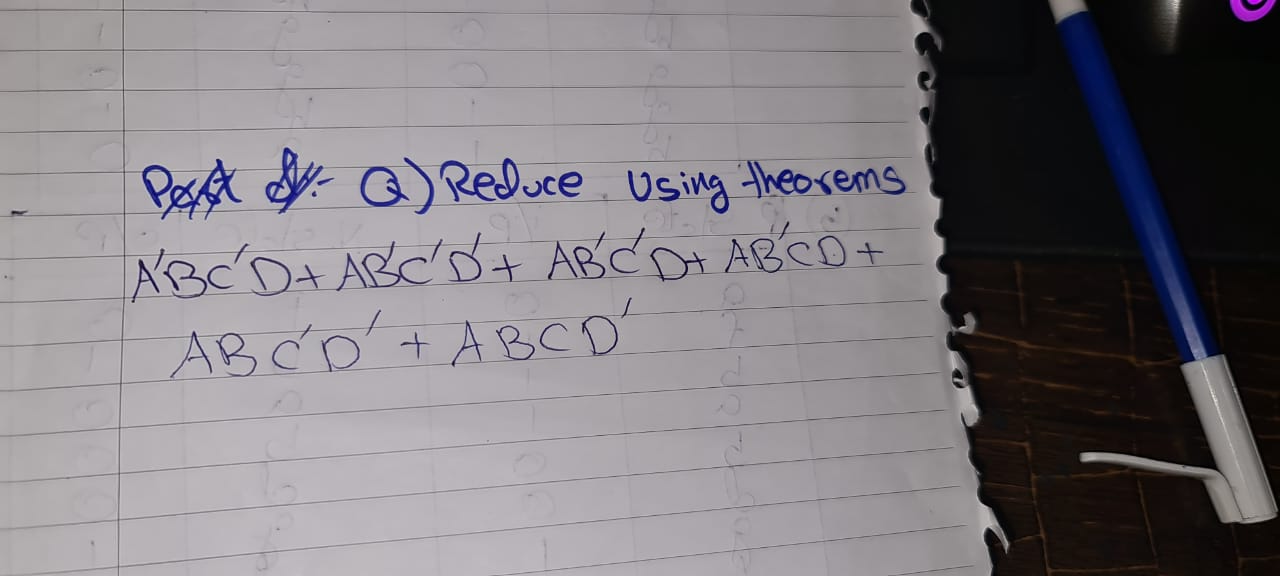 Q) Reduce Using theorems
A'BC'D + AB'C'D' + AB'C'D + AB'CD +
ABC'D' + ABCD'